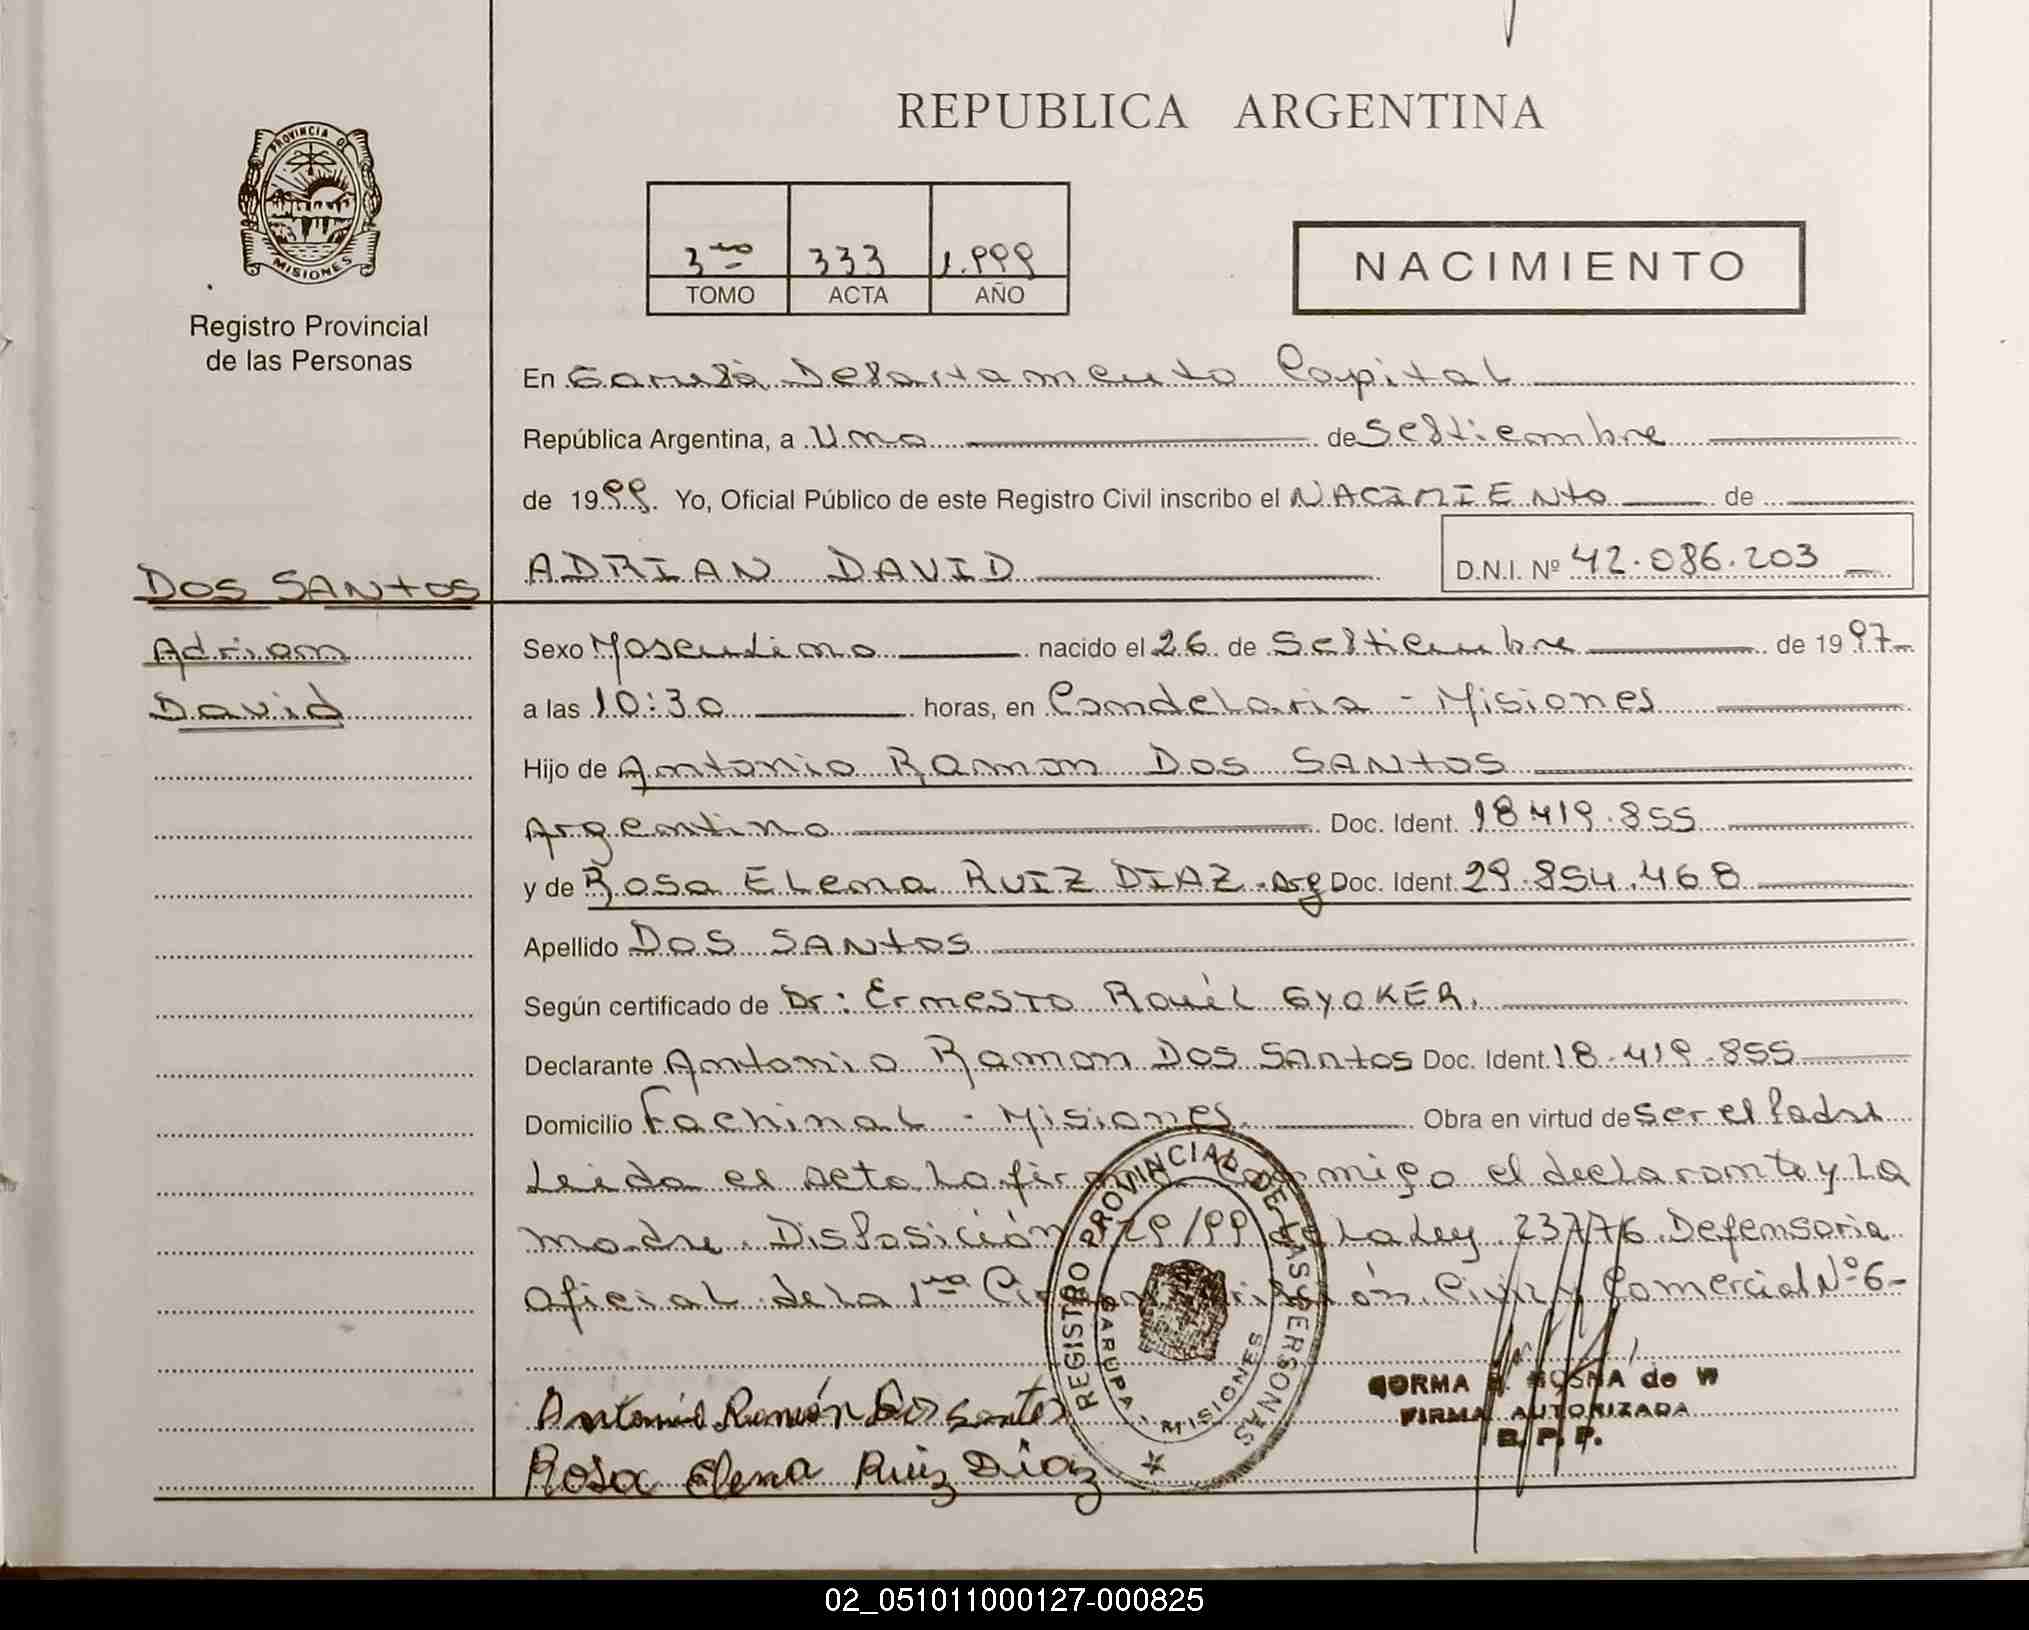 REPUBLICA ARGENTINA
PROVINCIA DE
MISIONES
Registro Provincial
de las Personas
3ro 333 1.999
TOMO ACTA AÑO
NACIMIENTO
En Garupá Departamento Capital
República Argentina, a Uno de Septiembre
de 1999. Yo, Oficial Público de este Registro Civil inscribo el NACIMIENto de
ADRIAN DAVID D.N.I. Nº 42.086.203
DOS SANtOS
Adrian
David
Sexo Masculino nacido el 26 de Septiembre de 1997
a las 10:30 horas, en Candelaria - Misiones
Hijo de Antonio Ramon DOS SANtOS
Argentino Doc. Ident. 18.419.855
y de Rosa Elena RUIZ DIAZ. Arg Doc. Ident. 29.854.468
Apellido DOS SANtOS
Según certificado de Dr: Ernesto Raúl GYOKER.
Declarante Antonio Ramon DOS SANtOS Doc. Ident. 18.419.855
Domicilio Fachinal - Misiones. Obra en virtud de ser el Padre
Leida el acta la firman conmigo el declarante y la
madre. Disposición 729/99 de la Ley 23776. Defensoria
Oficial de la 1ra Circunscripción Civil y Comercial Nº 6-
Antonio Ramón Dos santos
Rosa elena Ruiz Diaz
REGISTRO PROVINCIAL DE LAS PERSONAS
GARUPA, MISIONES
FIRMA AUTORIZADA